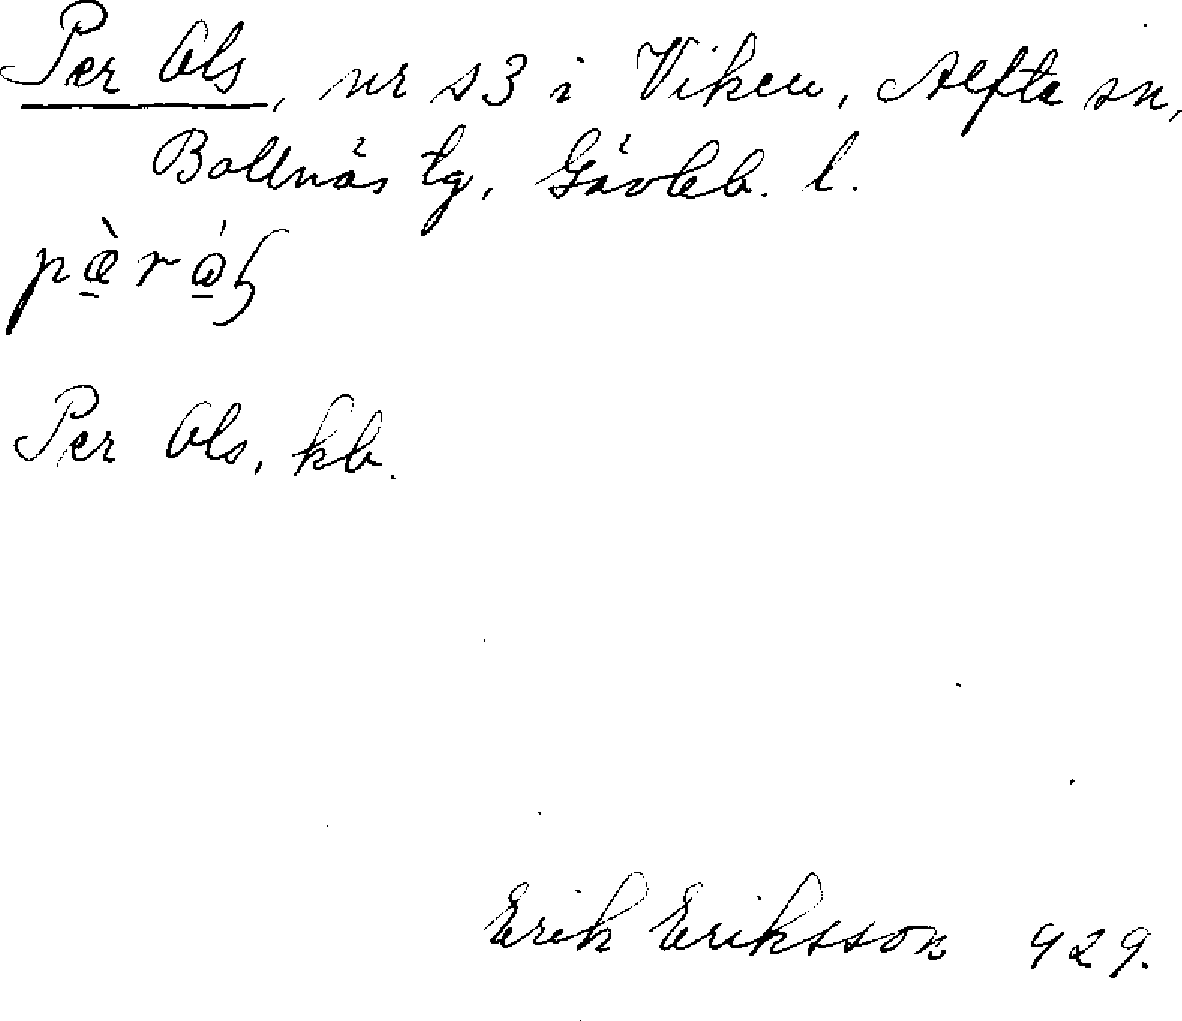 Per Ols, nr s3 i Viken, Alfta sn,
Bollnäs tg, Gävleb. l.
Per Ols, kb.
Erik Eriksson 929.